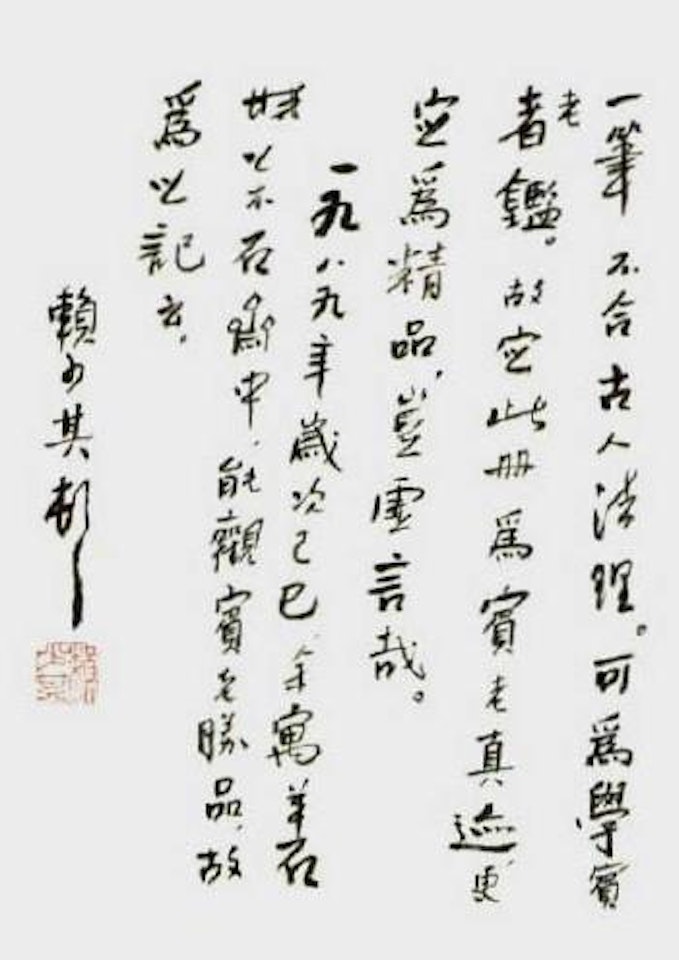 一筆不合古人法理。可為學賓
老者鑑。故定此冊為賓老真迹,更
定為精品,豈虛言哉。
一九八九年歲次己巳,余寓羊石
以不石齋中,能觀賓老勝品,故
為以記之。
賴少其